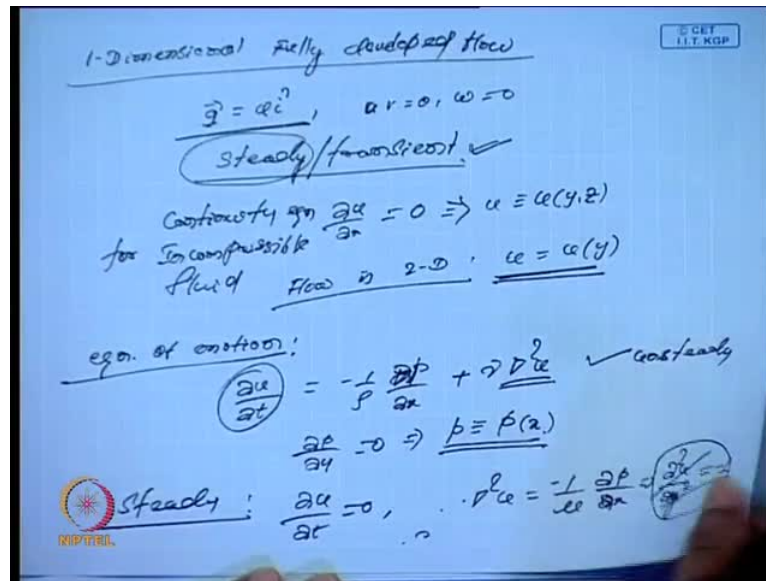 © CET
I.I.T. KGP
1-Dimensional Fully developed flow
q⃗ = u î, v = 0, w = 0
Steady/transient. ✓
Continuity eqn ∂u/∂x = 0 ⇒ u ≡ u(y,z)
for Incompressible
fluid Flow in 2-D, u = u(y)
eqn. of motion:
∂u/∂t = -1/ρ ∂p/∂x + ν ∇²u ✓ unsteady
∂p/∂y = 0 ⇒ p ≡ p(x)
Steady: ∂u/∂t = 0, ∇²u = -1/μ ∂p/∂x =
NPTEL